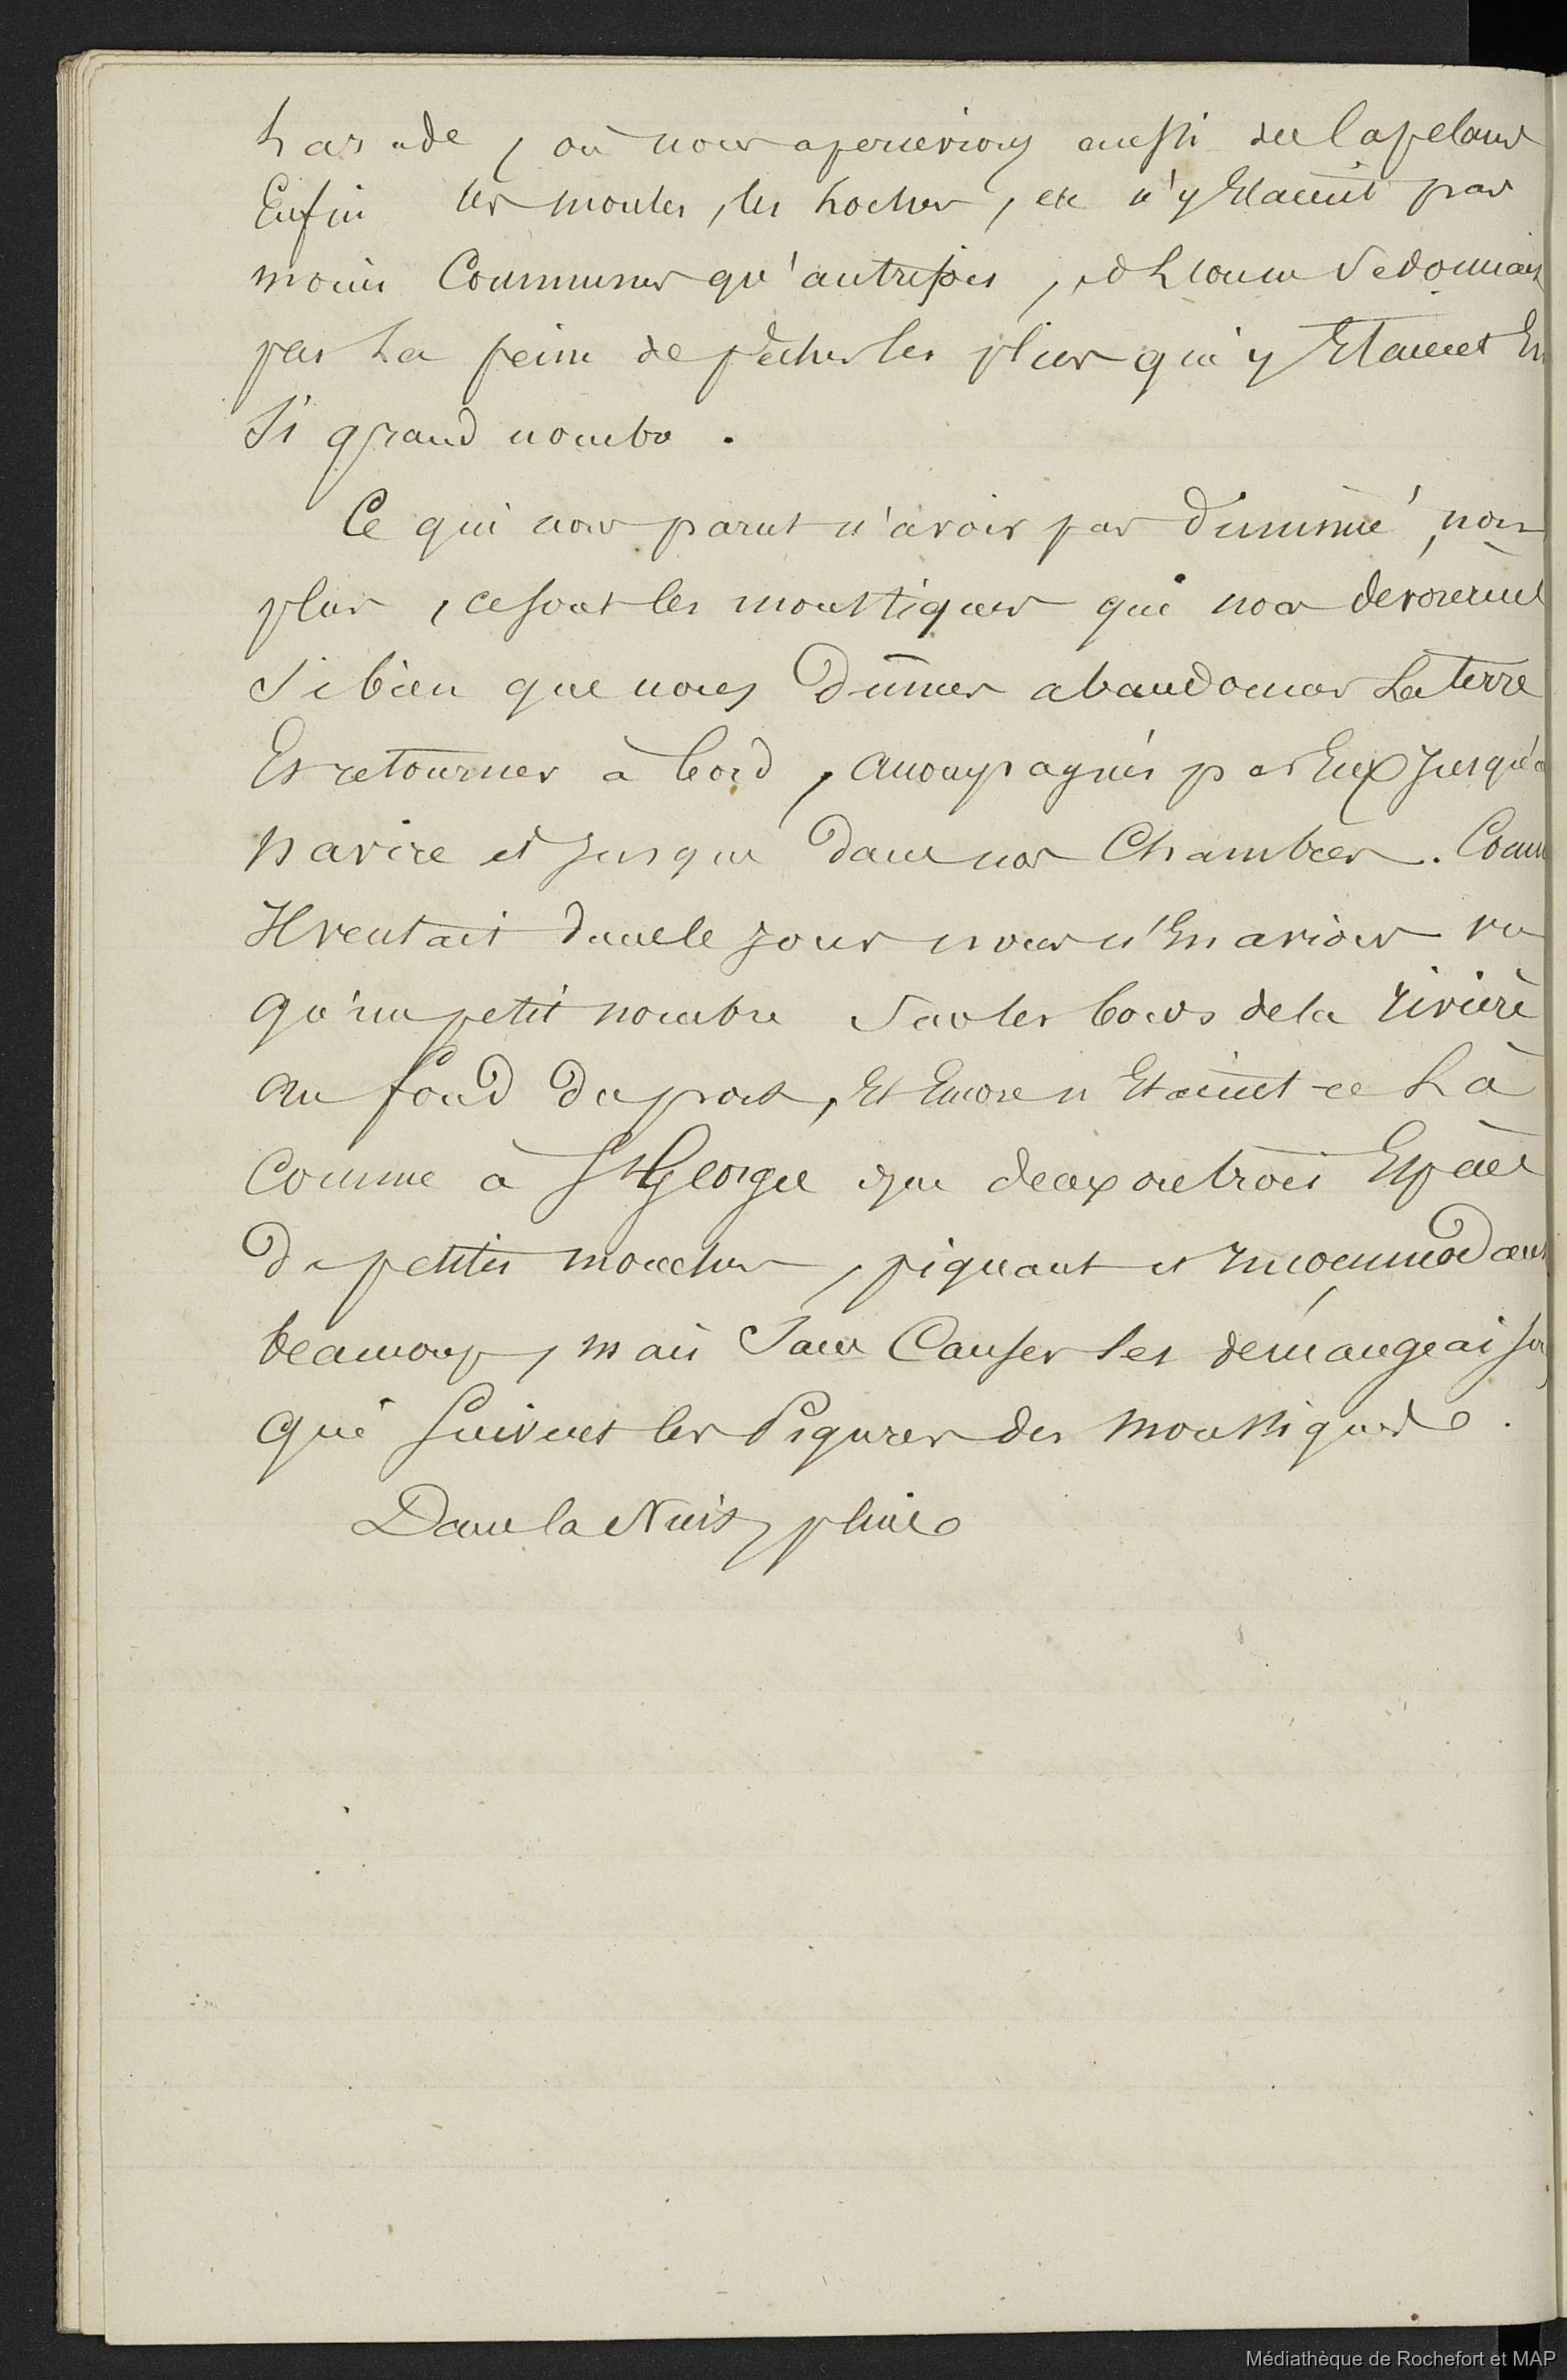 la rade, où nous apercevions aussi des Capelans
Enfin les moules, les coches, etc n'y Etaient pas
moins Communes qu'autrefois, et L'on ne se donnait
pas La peine de pêcher les plies qui y Etaient En
Si grand nombre.
Ce qui nous parut n'avoir pas diminué, non
plus, ce sont les moustiques qui nous devorèrent
Si bien que nous dûmes abandonner La terre
Et retourner à bord, accompagnés par Eux Jusqu'a
navire et Jusque dans nos Chambres. Comme
Il ventait dans le jour nous n'En avions vu
qu'un petit nombre sur les bords de la rivière
au fond du port, Et Encore n'Etaient-ce Là
Comme à St George que deux ou trois Espèces
de petites mouches, piquant et Incommodant
beaucoup, mais Sans Causer les demangeaisons
qui Suivent les Piqures des moustiques.
Dans la Nuit, pluie